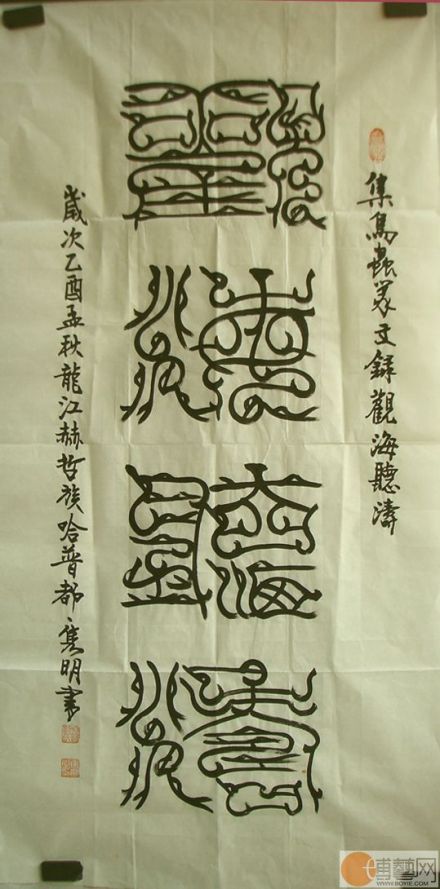 集鳥蟲篆文錄觀海聽濤
觀海聽濤
歲次乙酉孟秋龍江赫哲族哈普都·隽明書
博藝网
WWW.BOYIE.COM